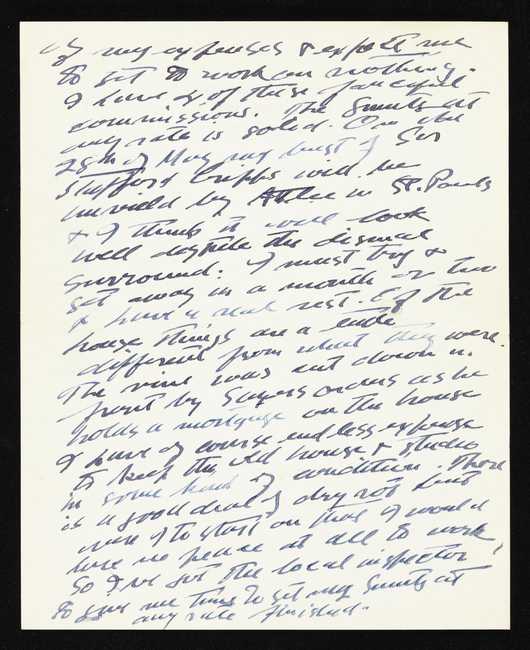 of my expenses & expect me
to get to work on nothing.
I have 2 of these fanciful
commissions. The Smuts at
any rate is solid. On the
28th of May my bust of Sir
Stafford Cripps will be
unveiled by Attlee in St. Pauls
& I think it will look
well despite the dismal
surround. I must try &
get away in a month or two
& have a real rest. Of the
house things are a little
different from what they were.
The vine was cut down in
front by Sayers orders as he
holds a mortgage on the house
I have of course endless expense
to keep the old house & studio
in some kind of condition. There
is a good deal of dry rot but
were I to start on that I would
have no peace at all to work
so I've got the local inspector
to give me time to get my Smuts at
any rate finished.